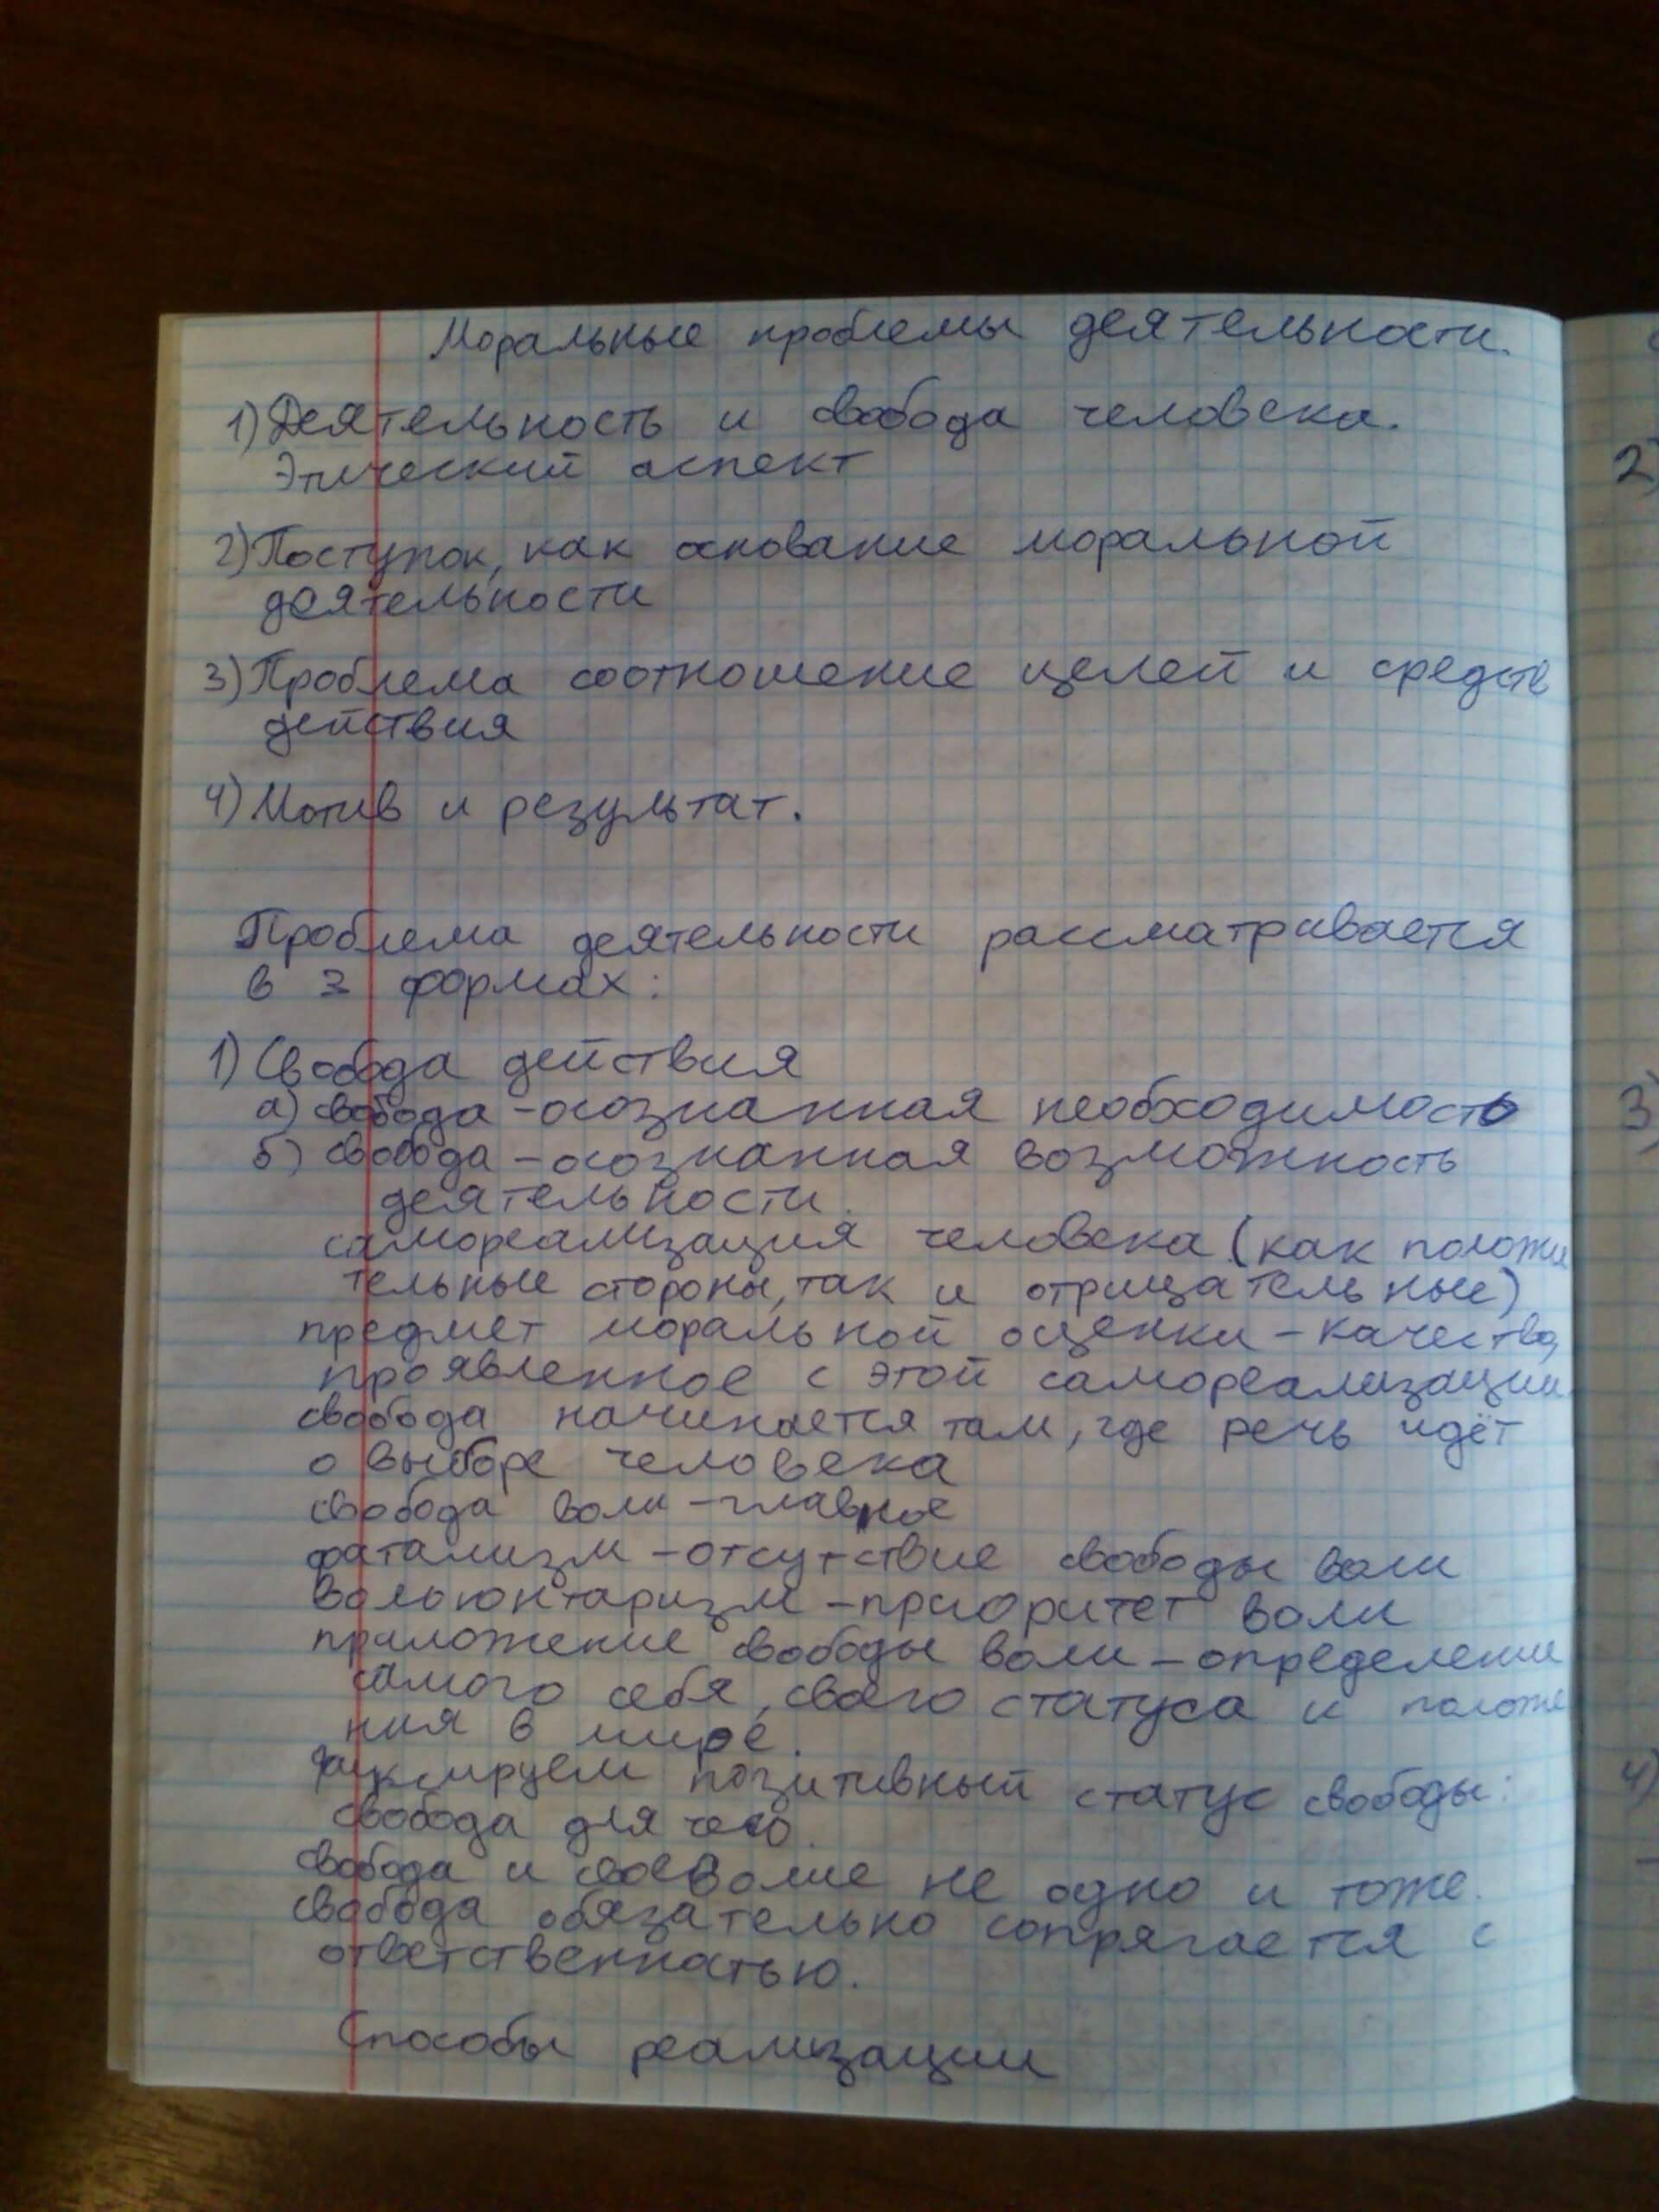 Моральные проблемы деятельности.
1) Деятельность и свобода человека.
Этический аспект
2) Поступок, как основание моральной
деятельности
3) Проблема соотношение целей и средств
действия
4) Мотив и результат.
Проблема деятельности рассматривается
в 3 формах:
1) Свобода действия
а) свобода - осознанная необходимость
б) свобода - осознанная возможность
деятельности.
самореализация человека (как положи
тельные стороны, так и отрицательные)
предмет моральной оценки - качество,
проявленное с этой самореализации.
свобода начинается там, где речь идёт
о выборе человека
свобода воли - главное
фатализм - отсутствие свободы воли
вольюнтаризм - приоритет воли
приложение свободы воли - определение
самого себя, своего статуса и положе
ния в мире.
фиксируем позитивный статус свободы:
свобода для чего.
свобода и своеволие не одно и тоже.
свобода обязательно сопрягается с
ответственностью.
Способы реализации
2)
3)
4)